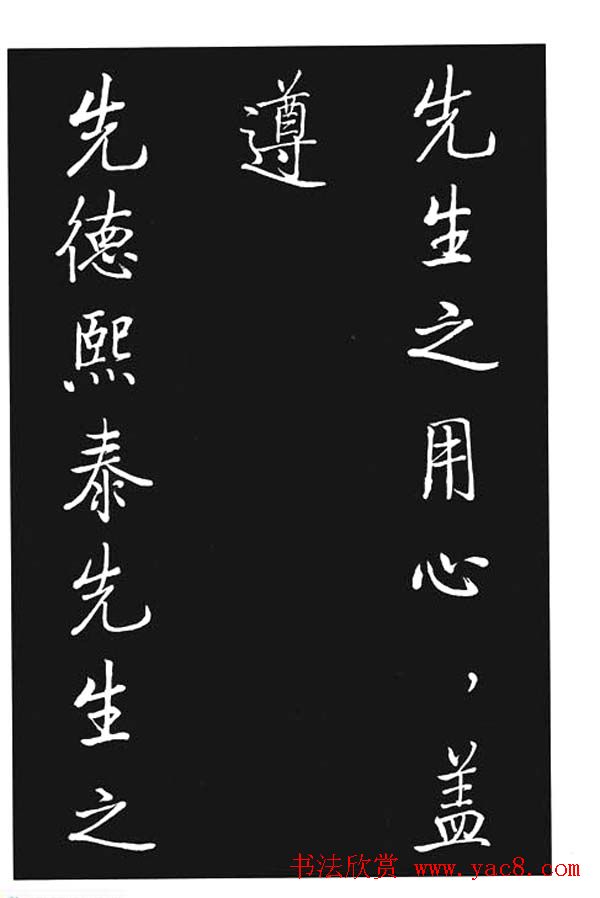 先生之用心，盖
遵
先德熙泰先生之
书法欣赏 www.yac8.com